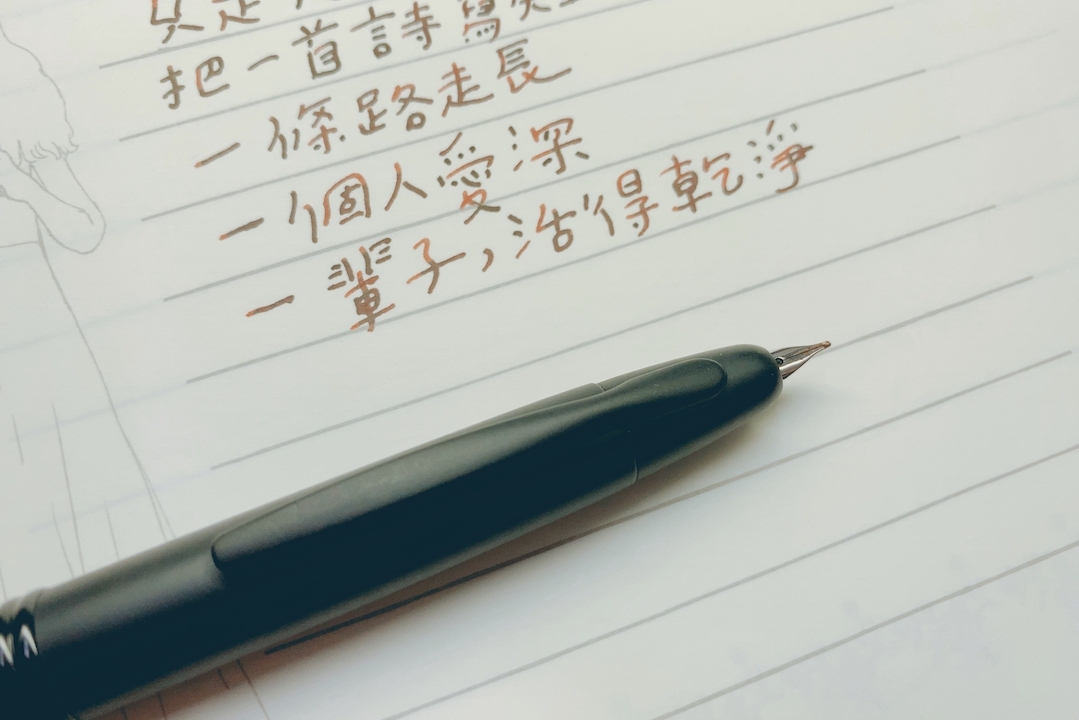 只是
把一首詩寫
一條路走長
一個人愛深
一輩子，活得乾淨